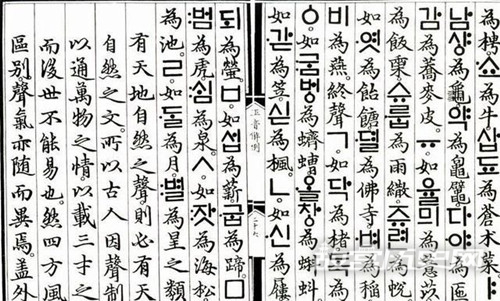 為柶。쇼為牛。삽됴為蒼朮菜
남샹為龜。약為龜鼊。다야為匜
감為蕎麥皮。ㅠ。如율믜為薏苡
為飯臿。슈룹為雨繖。쥬련為帨
如엿為飴餹。뎔為佛寺。벼為稻
비為燕。終聲ㄱ。如닥為楮
ㆁ。如굼벙為蠐螬。올창為蝌蚪
如갇為笠。싣為楓。ㄴ。如신為屨
正音解例 二十六
되為螢。ㅂ。如섭為薪。굽為蹄。ㅁ
범為虎。심為泉。ㅅ。如잣為海松
為池。ㄹ。如ᄃᆞᆯ為月。별為星之類
有天地自然之聲則必有天
自然之文。所以古人因聲制
以通萬物之情以載三才之
而後世不能易也。然四方風
區別聲氣亦隨而異焉。盖外